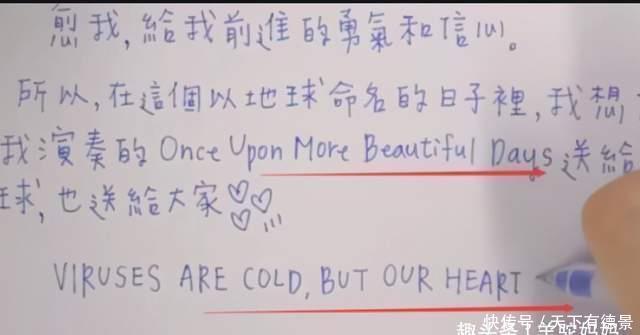 愈我,給我前進的勇氣和信心。
所以,在這個以地球命名的日子裡,我想
我演奏的 Once Upon More Beautiful Days 送給
球,也送給大家♡♡♡
VIRUSES ARE COLD, BUT OUR HEART
快传号/天下有德景